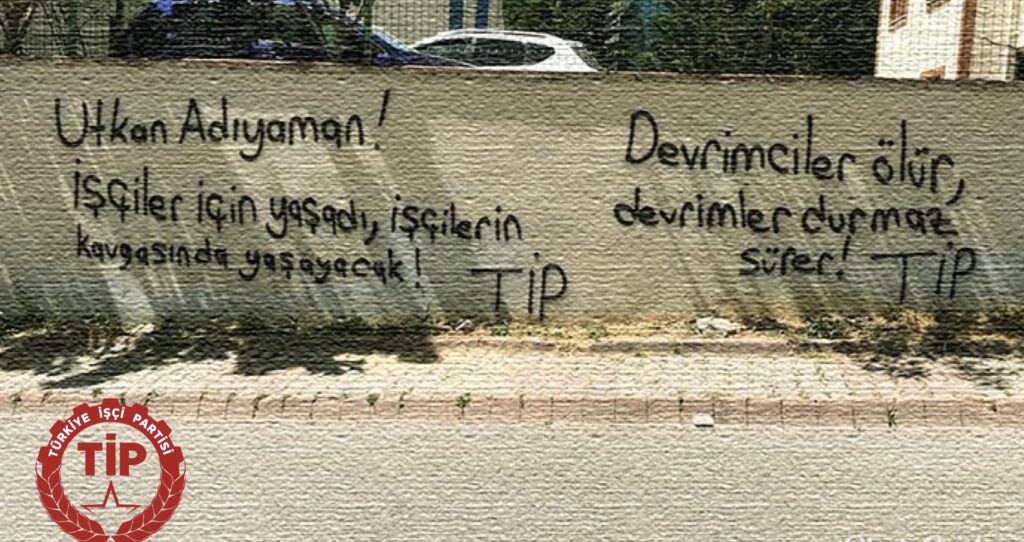 Utkan Adıyaman!
işçiler için yaşadı, işçilerin
kavgasında yaşayacak!
TİP
Devrimciler ölür,
devrimler durmaz
sürer! TİP
TÜRKİYE İŞÇİ PARTİSİ
TİP